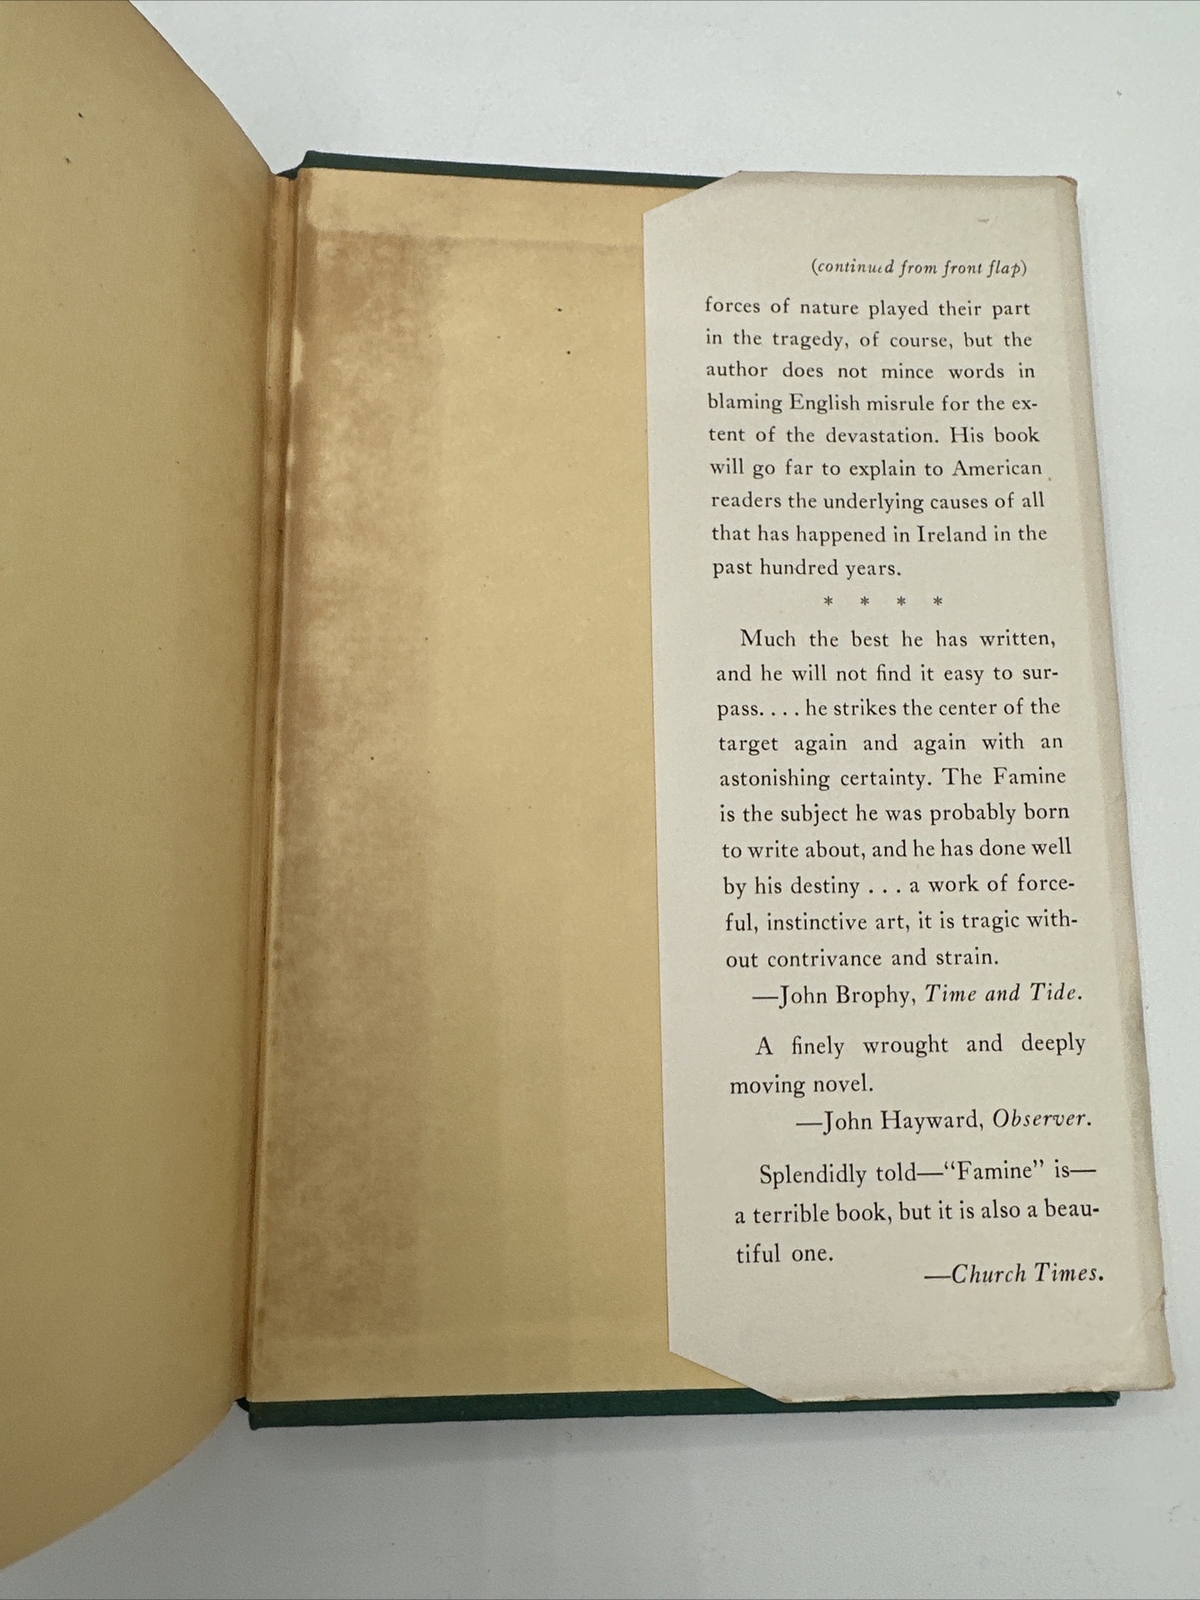 (continued from front flap)
forces of nature played their part
in the tragedy, of course, but the
author does not mince words in
blaming English misrule for the ex-
tent of the devastation. His book
will go far to explain to American
readers the underlying causes of all
that has happened in Ireland in the
past hundred years.
* * * *
Much the best he has written,
and he will not find it easy to sur-
pass. . . . he strikes the center of the
target again and again with an
astonishing certainty. The Famine
is the subject he was probably born
to write about, and he has done well
by his destiny . . . a work of force-
ful, instinctive art, it is tragic with-
out contrivance and strain.
—John Brophy, Time and Tide.
A finely wrought and deeply
moving novel.
—John Hayward, Observer.
Splendidly told—“Famine” is—
a terrible book, but it is also a beau-
tiful one.
—Church Times.